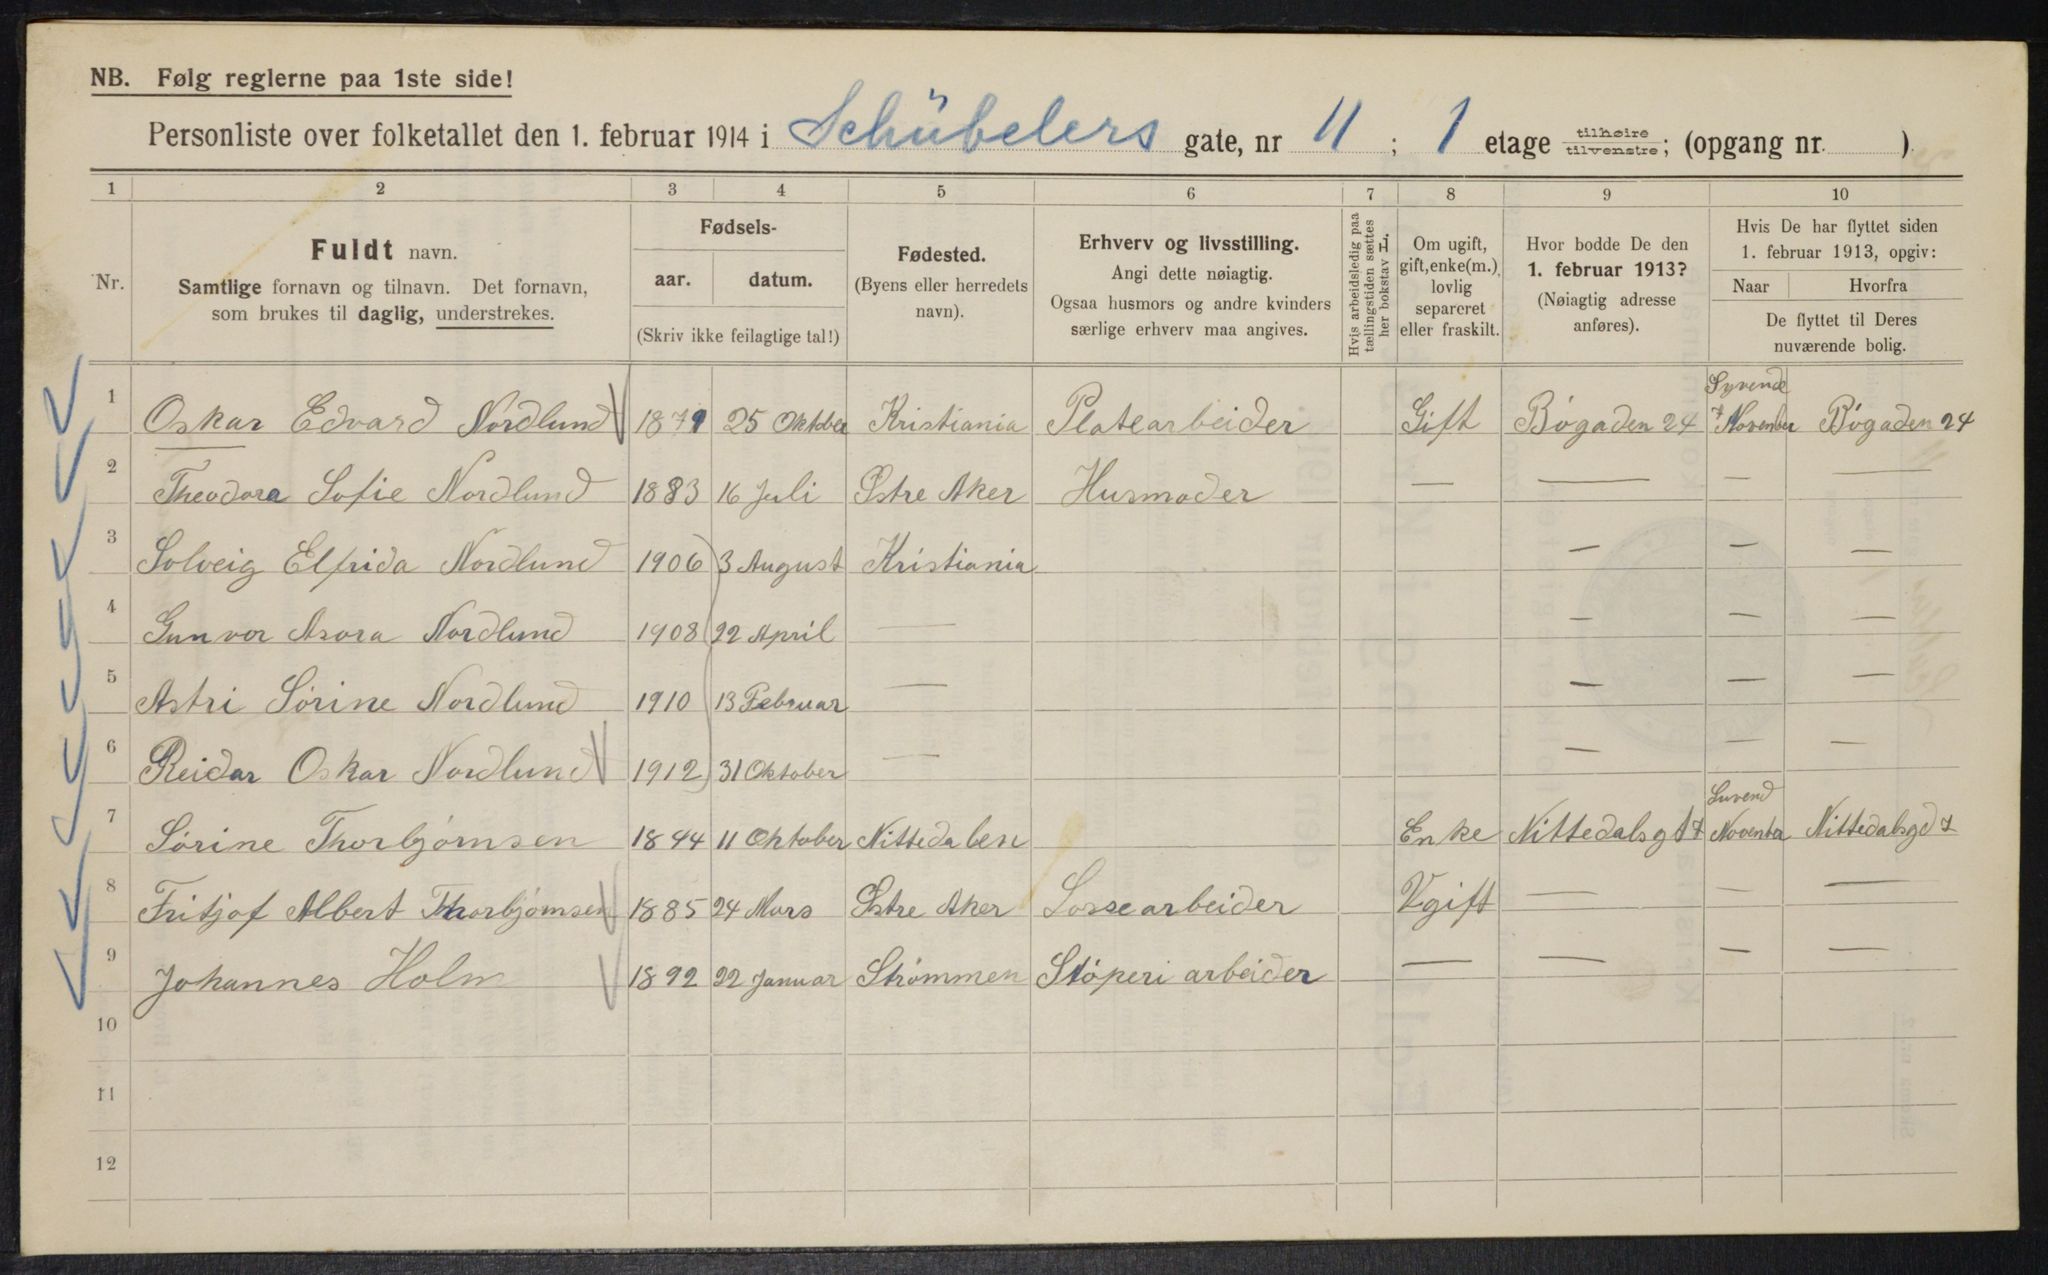 NB. Følg reglerne paa 1ste side!
Personliste over folketallet den 1. februar 1914 i Schübelers gate, nr 11 ; 1 etage tilhøire tilvenstre; (opgang nr. )
1 2 3 4 5 6 7 8 9 10
Nr.
Fuldt navn.
Samtlige fornavn og tilnavn. Det fornavn,
som brukes til daglig, understrekes.
Fødsels-
aar. datum.
(Skriv ikke feilagtige tal!)
Fødested.
(Byens eller herredets
navn).
Erhverv og livsstilling.
Angi dette nøiagtig.
Ogsaa husmors og andre kvinders
særlige erhverv maa angives.
Hvis arbeidsledig paa
tællingstiden sættes
her bokstav L.
Om ugift,
gift, enke(m.),
lovlig
separeret
eller fraskilt.
Hvor bodde De den
1. februar 1913?
(Nøiagtig adresse
anføres).
Hvis De har flyttet siden
1. februar 1913, opgiv:
Naar Hvorfra
De flyttet til Deres
nuværende bolig.
1 Oskar Edvard Nordlund 1879 25 Oktober Kristiania Platearbeider Gift Bøgaden 24 Syvende 7 November Bøgaden 24
2 Theodora Sofie Nordlund 1883 16 Juli Østre Aker Husmoder — — — —
3 Solveig Elfrida Nordlund 1906 3 August Kristiania — — —
4 Gunvor Asora Nordlund 1908 22 April — — — —
5 Astri Sørine Nordlund 1910 13 Februar — — — —
6 Reidar Oskar Nordlund 1912 31 Oktober — — — —
7 Sørine Thorbjørnsen 1844 11 Oktober Nittedalen Enke Nittedalsgt 7 November Nittedalsgd 7
8 Fritjof Albert Thorbjørnsen 1885 24 Mars Østre Aker Løssearbeider Ugift — — —
9 Johannes Holm 1892 22 Januar Strømmen Støperi arbeider — — — —
10
11
12